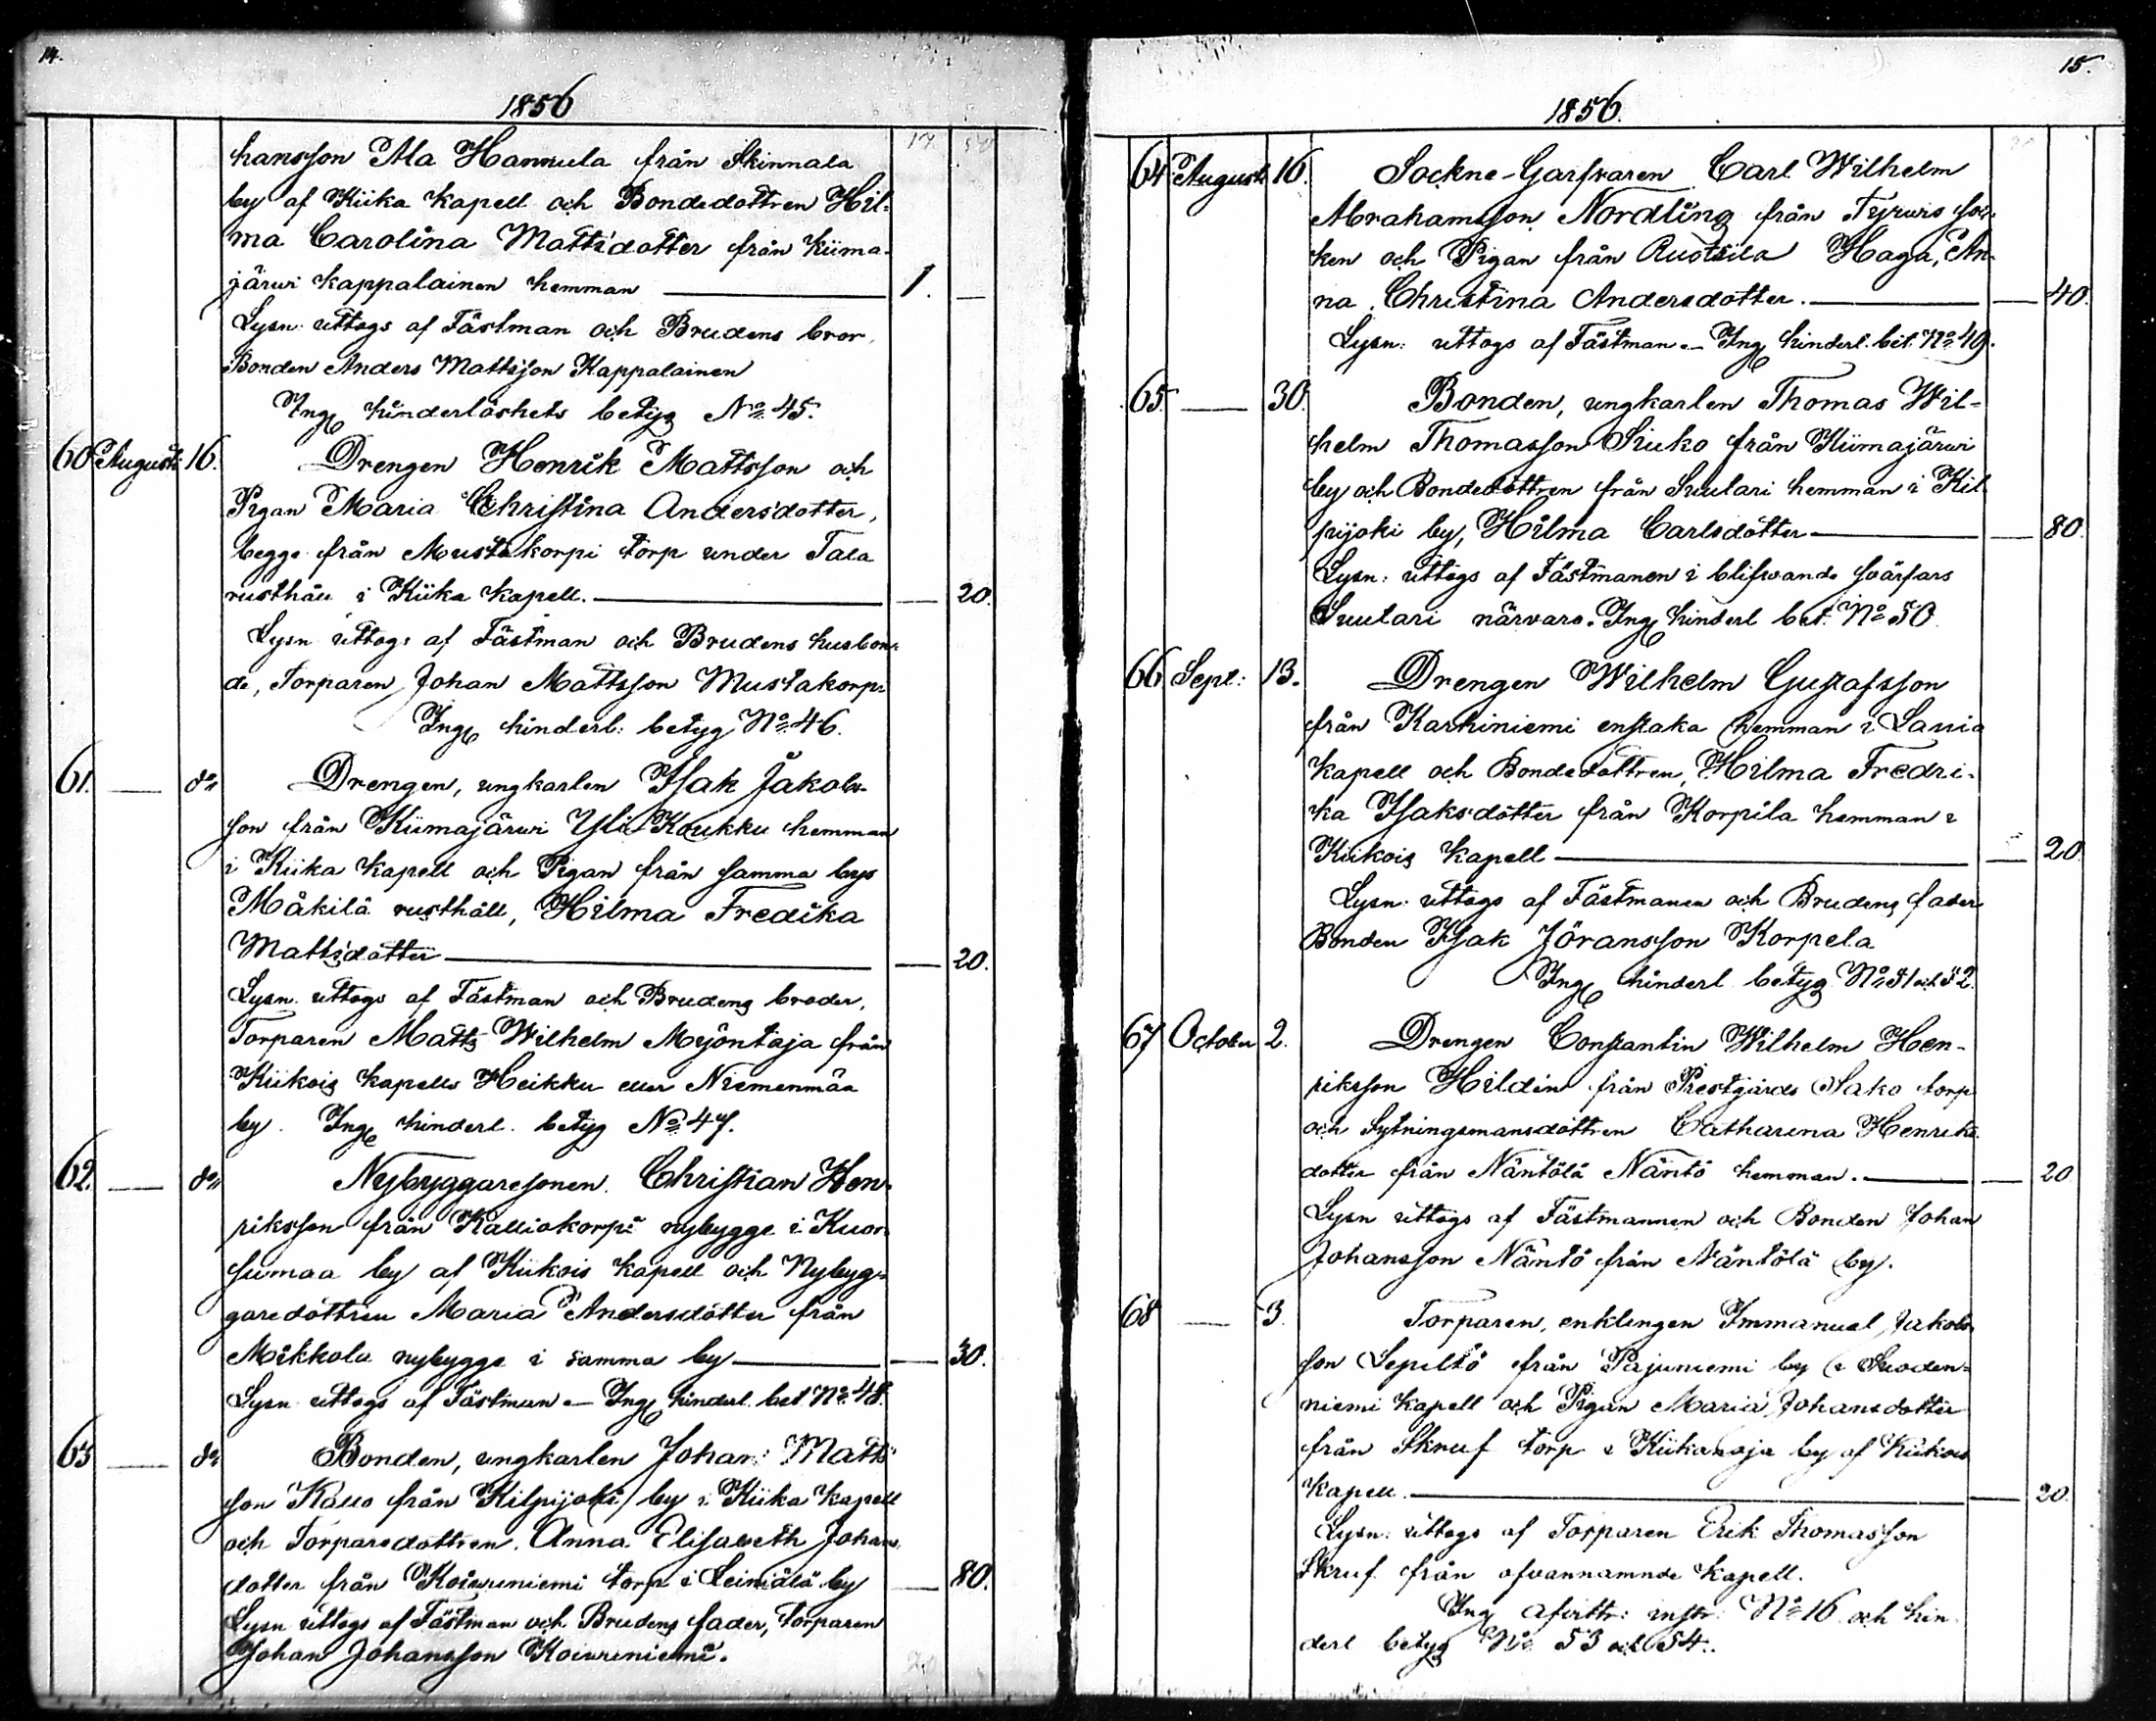 14.
1856
hansson Ala Hannula från Skinnala
by af Kiika Kapell och Bondedottren Hil-
ma Carolina Mattsdotter från Kiima-
järwi Kappalainen hemman — 1. —
Lysn: uttogs af Fästman och Brudens bror,
Bonden Anders Mattsson Kappalainen
Ing hinderlöshets betyg No 45.
60 Augusti 16. Drengen Henrik Mattsson och
Pigan Maria Christina Andersdotter,
begge från Mustakorpi torp under Tala
rusthåll i Kiika Kapell. — 20.
Lysn uttogs af Fästman och Brudens husbon-
de, Torparen Johan Mattsson Mustakorpi
Ing hinderl: betyg No 46.
61. — do Drengen, ungkarlen Isak Jakobs-
son från Kiimajärwi Yli-Koukku hemman
i Kiika Kapell och Pigan från samma bys
Mäkilä rusthåll, Hilma Fredika
Mattsdotter — 20.
Lysn. uttogs af Fästman och Brudens broder,
Torparen Matts Wilhelm Myöntäja från
Kiikois Kapells Heikku eller Niemenmaa
by. Ing hinderl. betyg No 47.
62. — do Nybyggaresonen Christian Hen-
riksson från Kalliokorpi nybygge i Kuor-
sumaa by af Kiikois Kapell och Nybyg-
garedottren Maria Andersdotter från
Mikkola nybygge i samma by — 30.
Lysn uttogs af Fästman — Ing hinderl. bet No 48.
63 — do Bonden, ungkarlen Johan Matts
son Kallo från Kilpijoki by i Kiika Kapell
och Torparedottren Anna Elisabeth Johans-
dotter från Koiwuniemi torp i Leiniälä by — 80.
Lysn uttogs af Fästman och Brudens fader, Torparen
Johan Johansson Koiwuniemi.
15.
1856.
64 Augusti 16. Sockne-Garfvaren Carl Wilhelm
Abrahamsson Nordling från Tyrwis soc-
ken och Pigan från Ruotsila Haga, An-
na Christina Andersdotter. — 40.
Lysn: uttogs af Fästman — Ing hinderl. bet. No 49.
65. — 30. Bonden, ungkarlen Thomas Wil-
helm Thomasson Siuko från Kiimajärwi
by och Bondedottren från Suutari hemman i Kil
pijoki by, Hilma Carlsdotter — 80.
Lysn: uttogs af Fästmanen i blifwande svärfars
Suutari närvaro. Ing hinderl bet. No 50
66 Sept: 13. Drengen Wilhelm Gustafsson
från Karhiniemi enstaka hemman i Lavia
Kapell och Bondedottren, Hilma Fredri-
ka Isaksdotter från Korpila hemman i
Kiikois Kapell — 20
Lysn. uttogs af Fästmanen och Brudens fader
Bonden Isak Jöransson Korpela
Ing hinderl betyg No 51 och 52.
67 October 2. Drengen Constantin Wilhelm Hen-
riksson Hildén från Prestgårds Sako torp
och Sytningsmansdottren Catharina Henriks
dotter från Näntölä Näntö hemman. — 20
Lysn uttogs af Fästmannen och Bonden Johan
Johansson Näntö från Näntölä by.
68 — 3. Torparen, enklingen Immanuel Jakobs
son Sepiltö från Pajuniemi by i Suoden-
niemi Kapell och Pigan Maria Johansdotter
från Skruf torp i Kiikanoja by af Kiikois
Kapell. — 20.
Lysn: uttogs af Torparen Erik Thomasson
Skruf från ofvannamnde Kapell.
Ing afvittr: instr: No 16 och hin
derl betyg No 53 och 54.